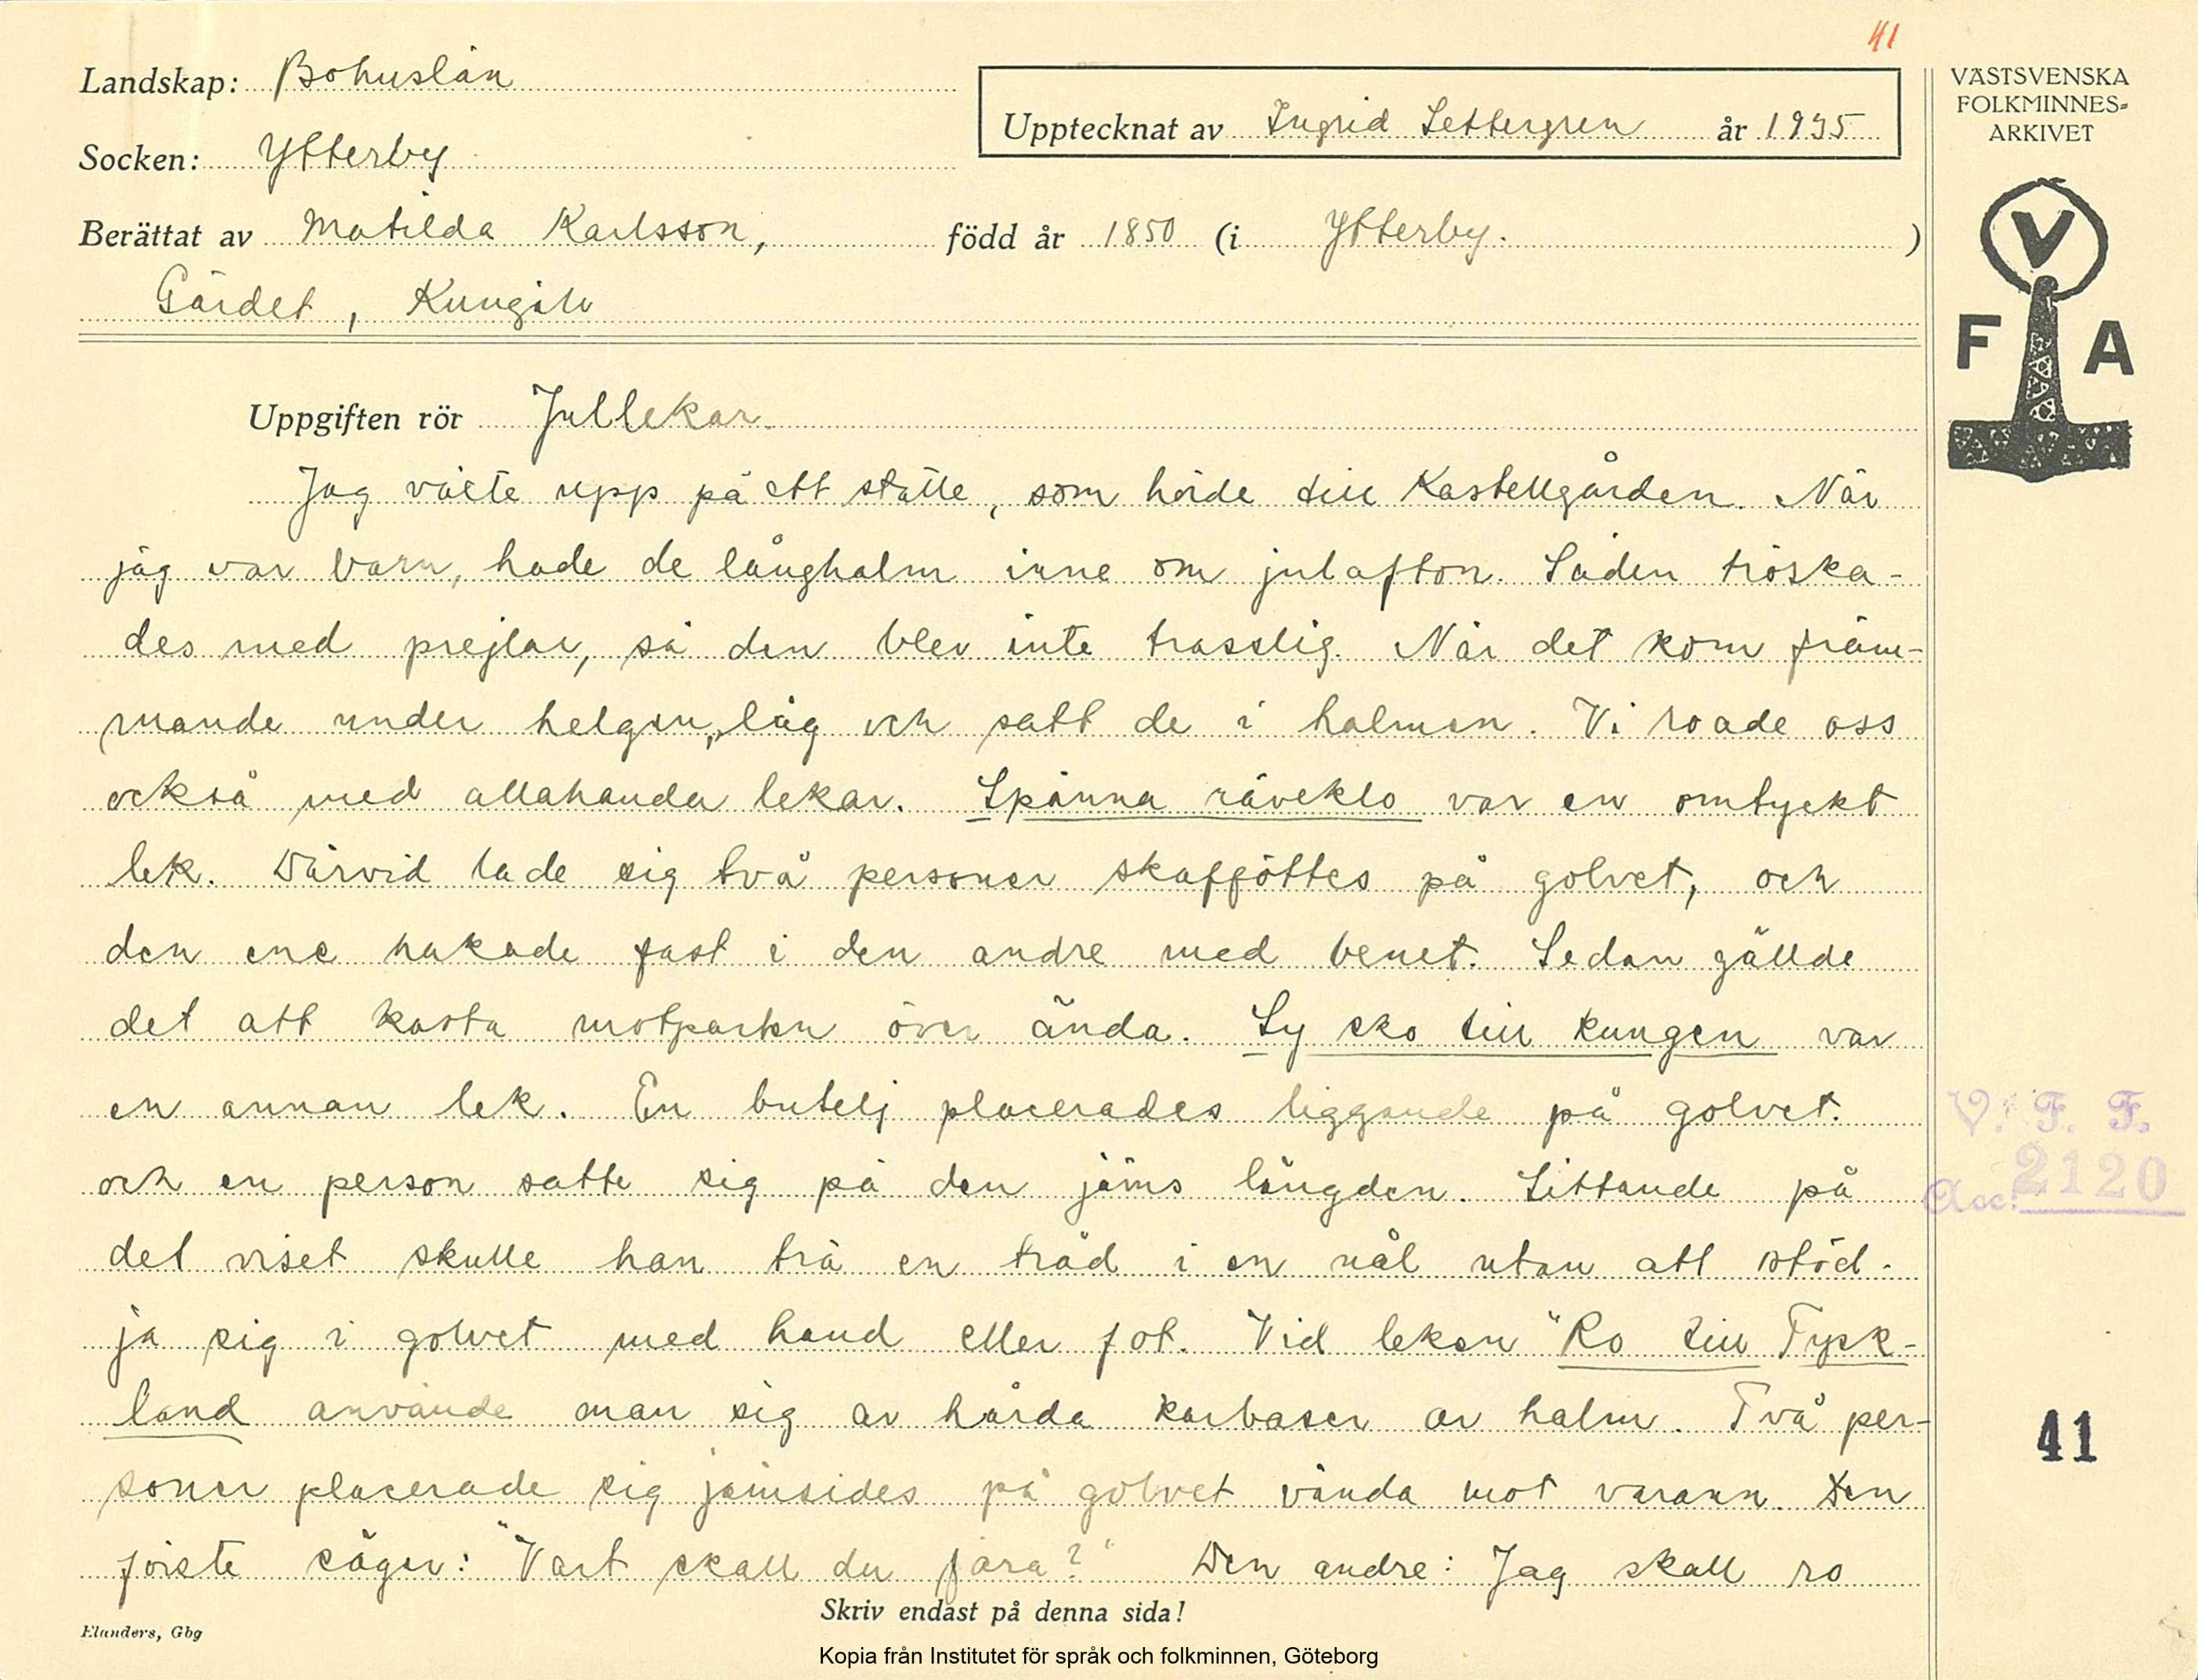 41
Landskap: Bohuslän
Socken: Ytterby
Upptecknat av Ingrid Settergren år 1935
VÄSTSVENSKA
FOLKMINNES-
ARKIVET
V
F A
Berättat av Matilda Karlsson, född år 1850 (i Ytterby. )
Gärdet, Kungälv
Uppgiften rör Jullekar.
Jag växte upp på ett ställe, som hörde till Kastellgården. När
jag var barn, hade de långhalm inne om julafton. Säden tröska-
des med prejlar, så den blev inte trasslig. När det kom främ-
mande under helgen, låg och satt de i halmen. Vi roade oss
också med allahanda lekar. Spänna räveklo var en omtyckt
lek. Därvid lade sig två personer skafföttes på golvet, och
den ene hakade fast i den andre med benet. Sedan gällde
det att kasta motparten över ända. Sy sko till kungen var
en annan lek. En butelj placerades liggande på golvet.
och en person satte sig på den jäms längden. Sittande på
det viset skulle han trä en tråd i en nål utan att stöd-
ja sig i golvet med hand eller fot. Vid leken "Ro till Tysk-
land använde man sig av hårda karbaser av halm. Två per-
soner placerade sig jämsides på golvet vända mot varann. Den
förste säger: "Vart skall du fara?" Den andre: Jag skall ro
V. F. F.
Acc. 2120
41
Skriv endast på denna sida!
Elanders, Gbg
Kopia från Institutet för språk och folkminnen, Göteborg